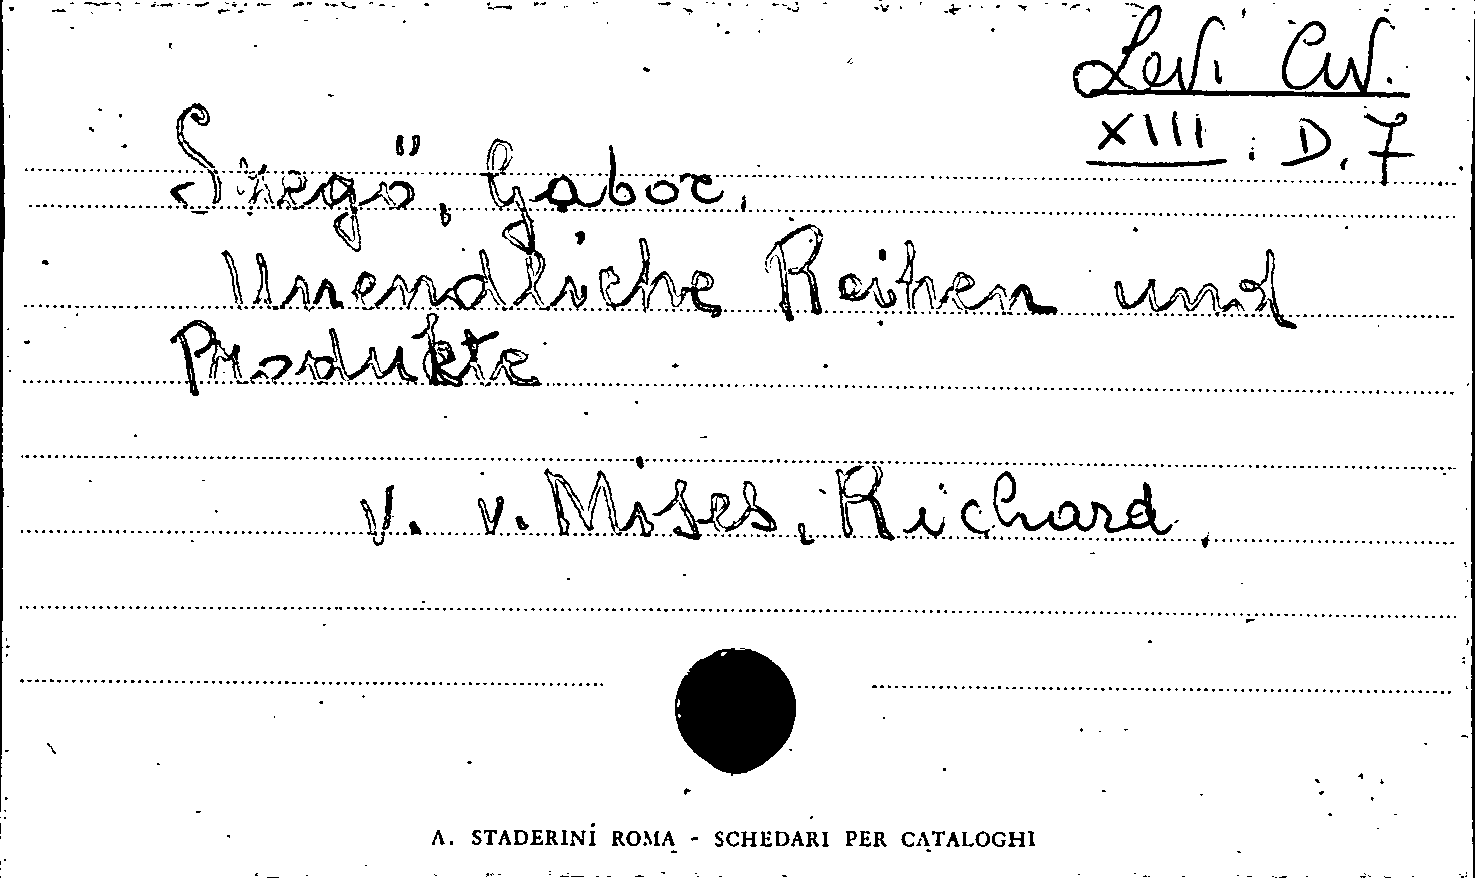 Levi Civ.
XIII. D. 7
Szegö, Gabor.
Unendliche Reihen und
Produkte
v. v. Mises, Richard.
A. STADERINI ROMA - SCHEDARI PER CATALOGHI